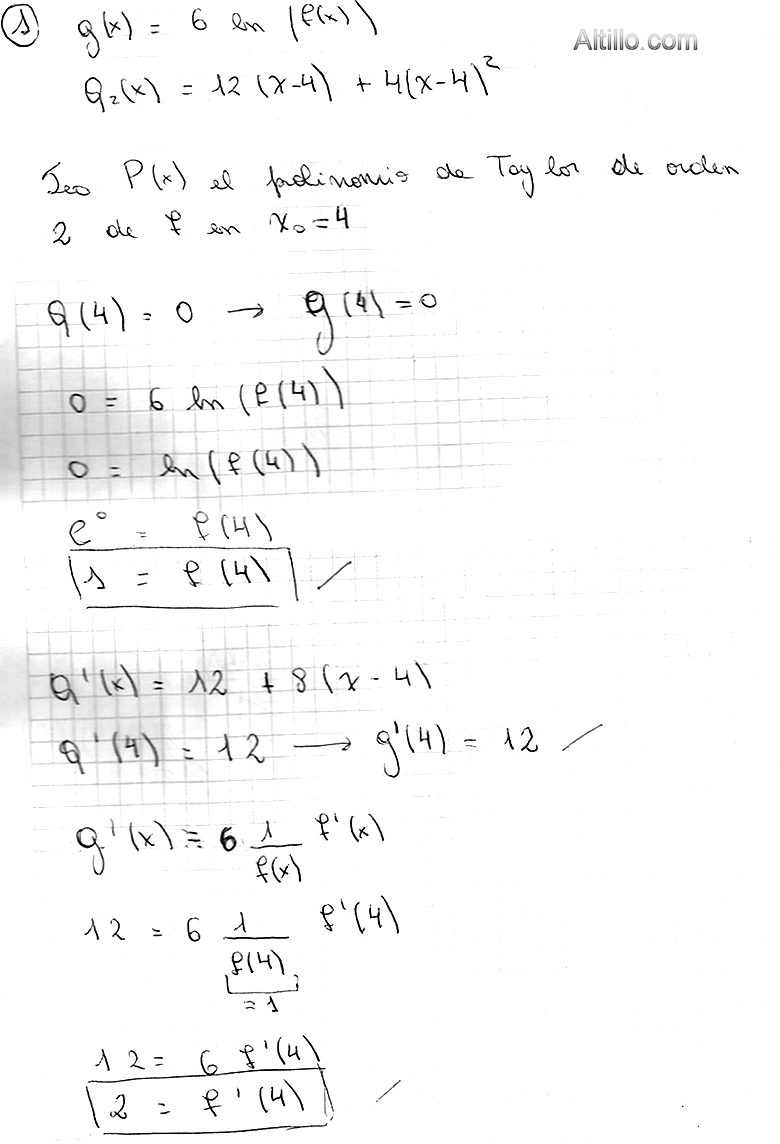 ① g(x) = 6 ln (f(x))
Altillo.com
Q₂(x) = 12 (x-4) + 4(x-4)²
Sea P(x) el polinomio de Taylor de orden
2 de f en x₀ = 4
Q(4) = 0 → g(4) = 0
0 = 6 ln (f(4))
0 = ln (f(4))
e⁰ = f(4)
1 = f(4)
Q'(x) = 12 + 8 (x - 4)
Q'(4) = 12 → g'(4) = 12
g'(x) = 6 1/f(x) f'(x)
12 = 6 1/f(4) f'(4)
= 1
12 = 6 f'(4)
2 = f'(4)